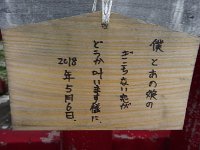 僕とあの娘の
ぎこちない恋が
どうか叶います様に、
2018年5月6日、